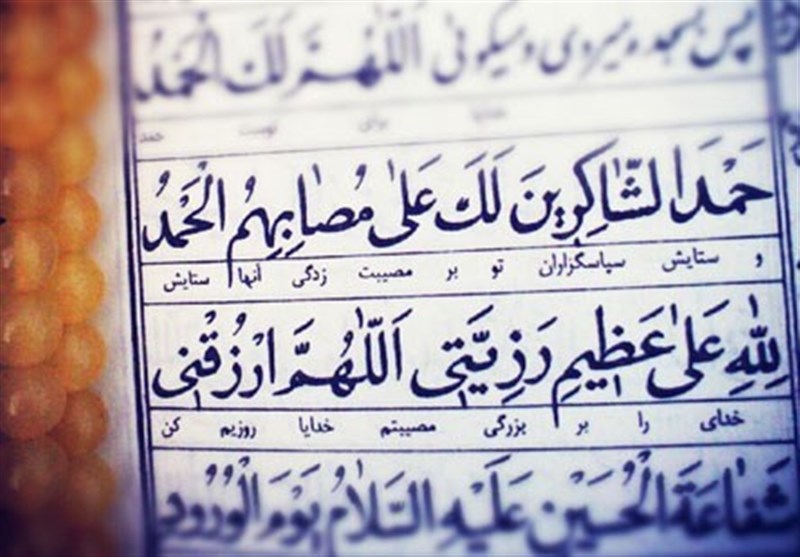 پس بسجده میروی و میگوئی اَللّٰهُمَّ لَكَ الْحَمْدُ
خدایا برای توست حمد
حَمْدَ الشّٰاكِرِينَ لَكَ عَلىٰ مُصٰابِهِمُ الْحَمْدُ
و ستایش سپاسگزاران تو بر مصیبت زدگی آنها ستایش
لِلّٰهِ عَلىٰ عَظِيمِ رَزِيَّتِي اَللّٰهُمَّ ارْزُقْنِي
خدای را بر بزرگی مصیبتم خدایا روزیم کن
شَفٰاعَةَ الْحُسَيْنِ عَلَيْهِ السَّلٰامُ يَوْمَ الْوُرُودِ